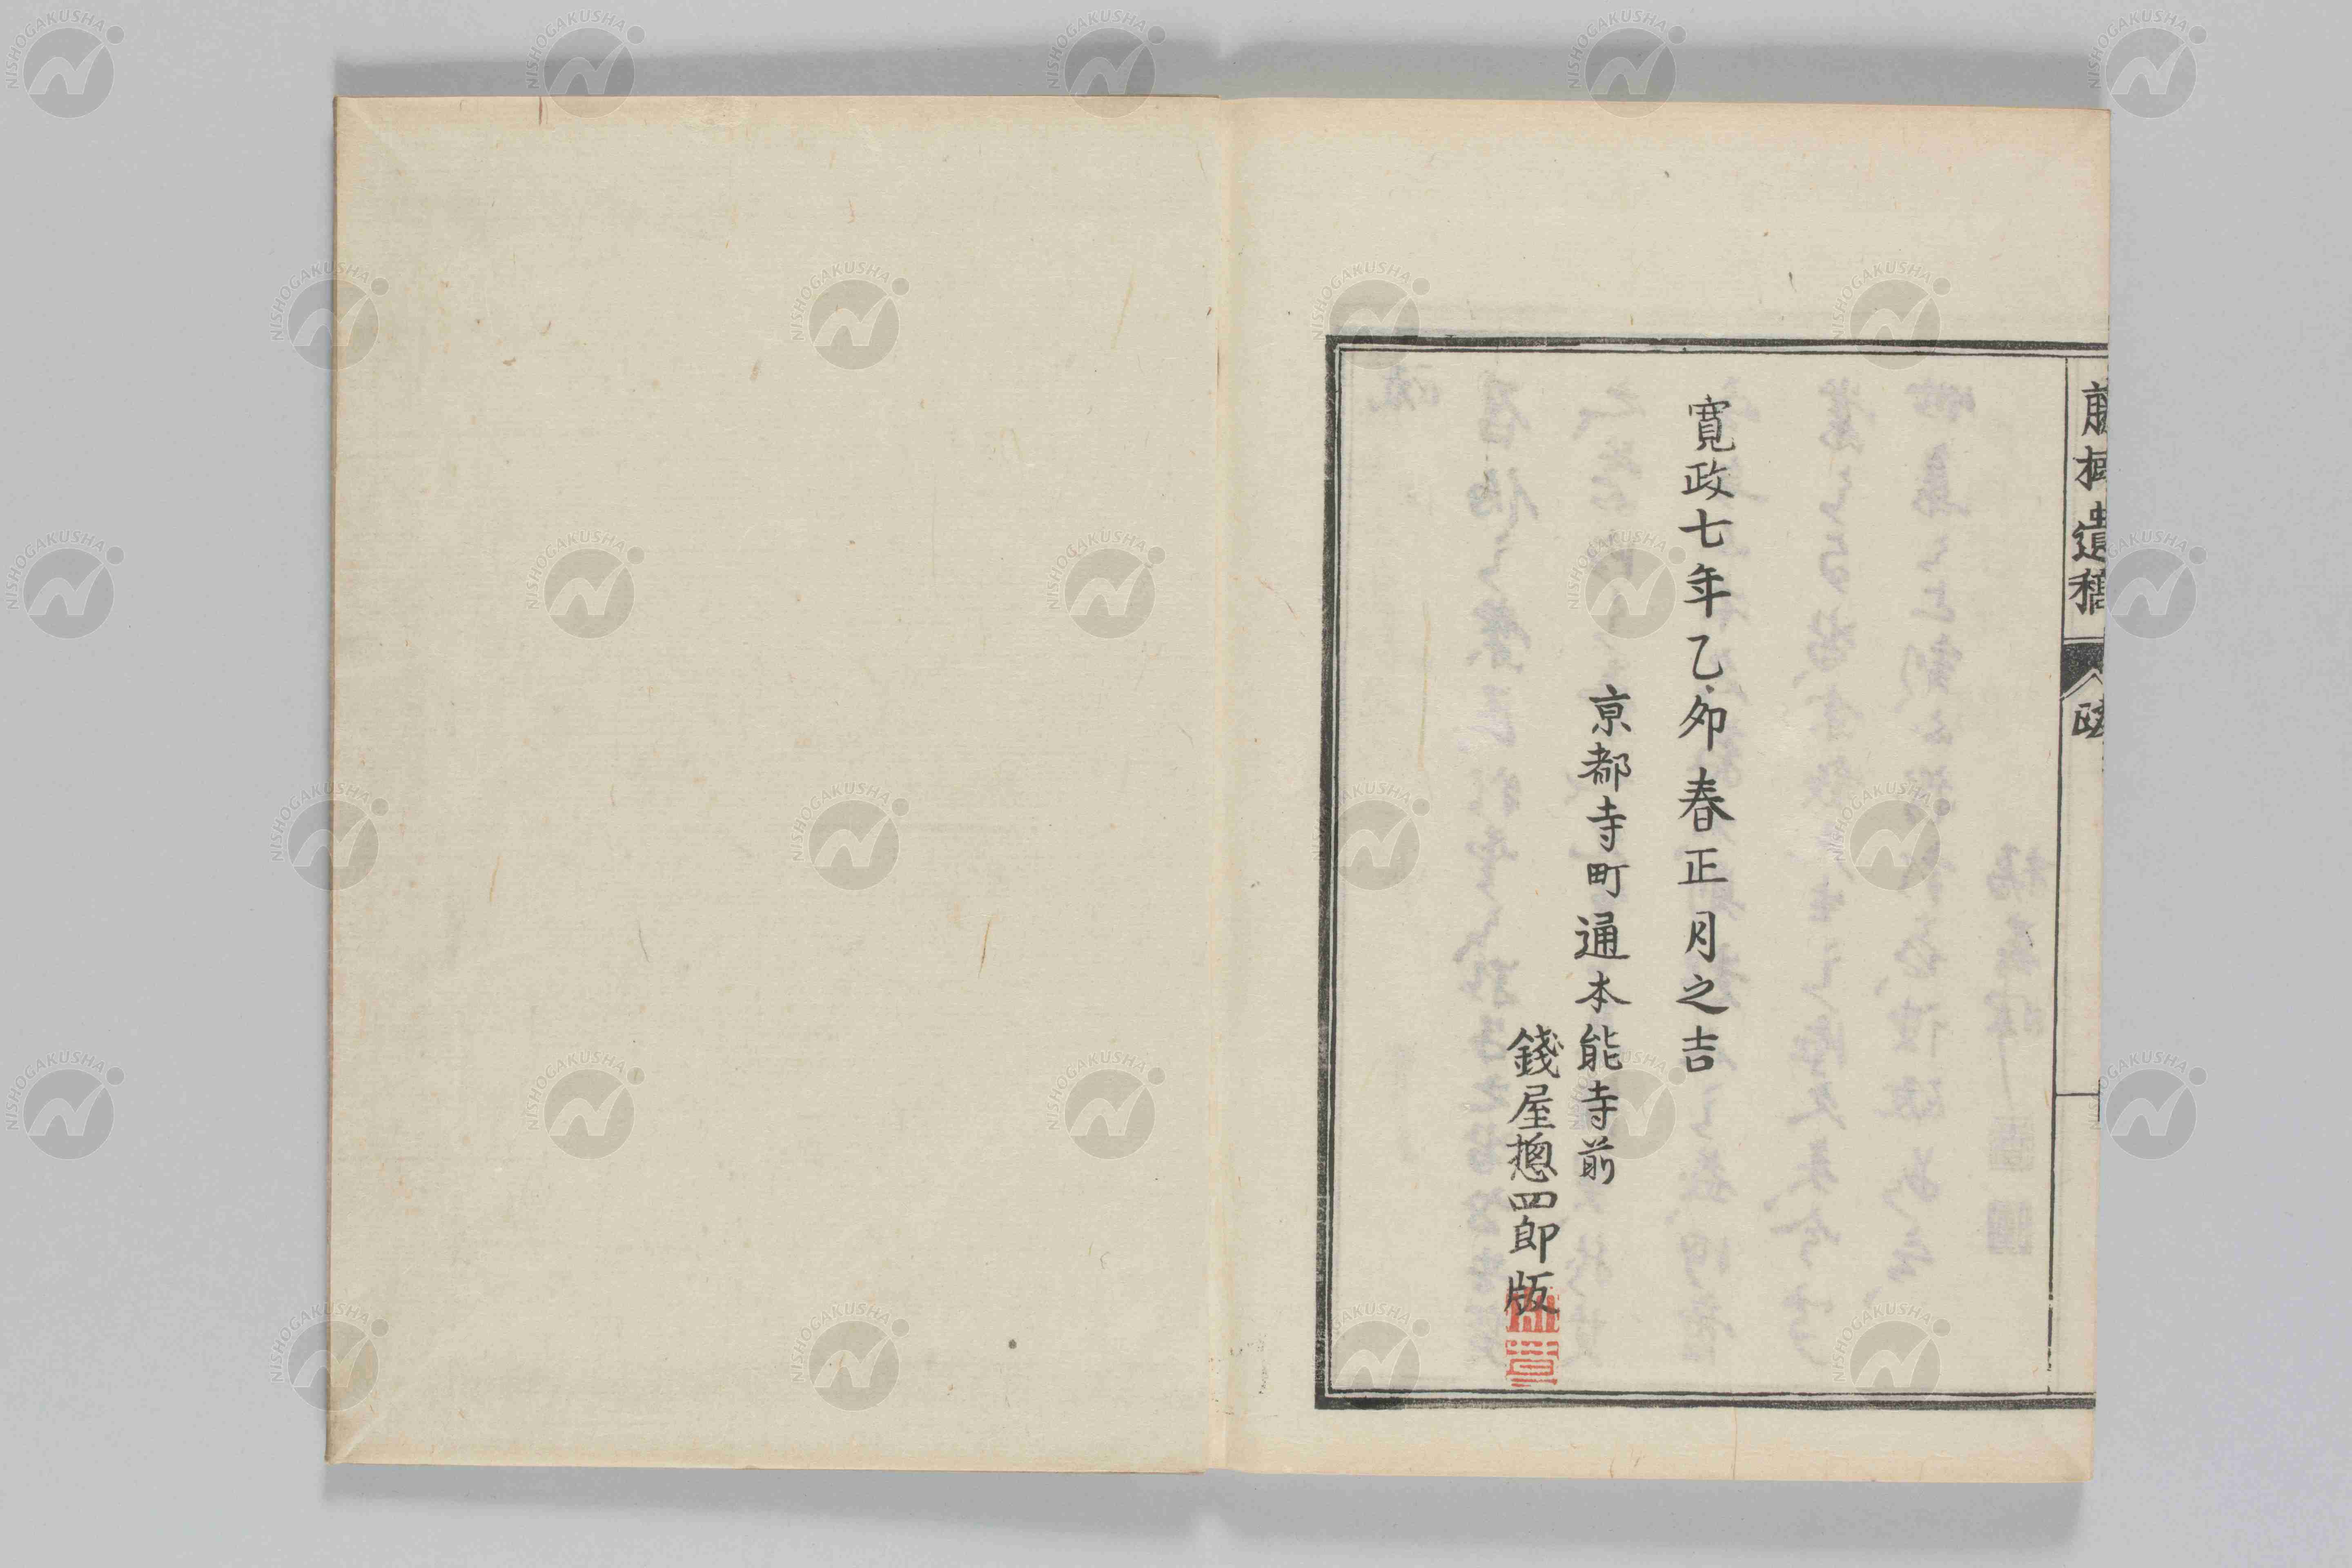 寛政七年乙夘春正月之吉
京都寺町通本能寺前
錢屋摠四郎版
遺稿
跋
NISHOGAKUSHA